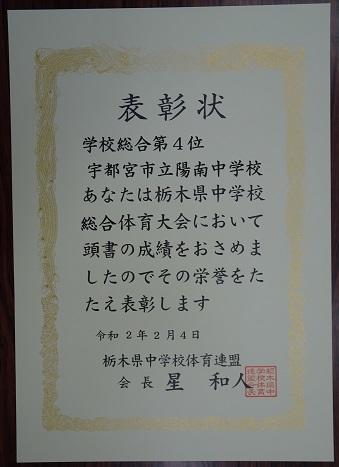 表彰状
学校総合第４位
宇都宮市立陽南中学校
あなたは栃木県中学校
総合体育大会において
頭書の成績をおさめま
したのでその栄誉をた
たえ表彰します
令和２年２月４日
栃木県中学校体育連盟
会長 星 和人